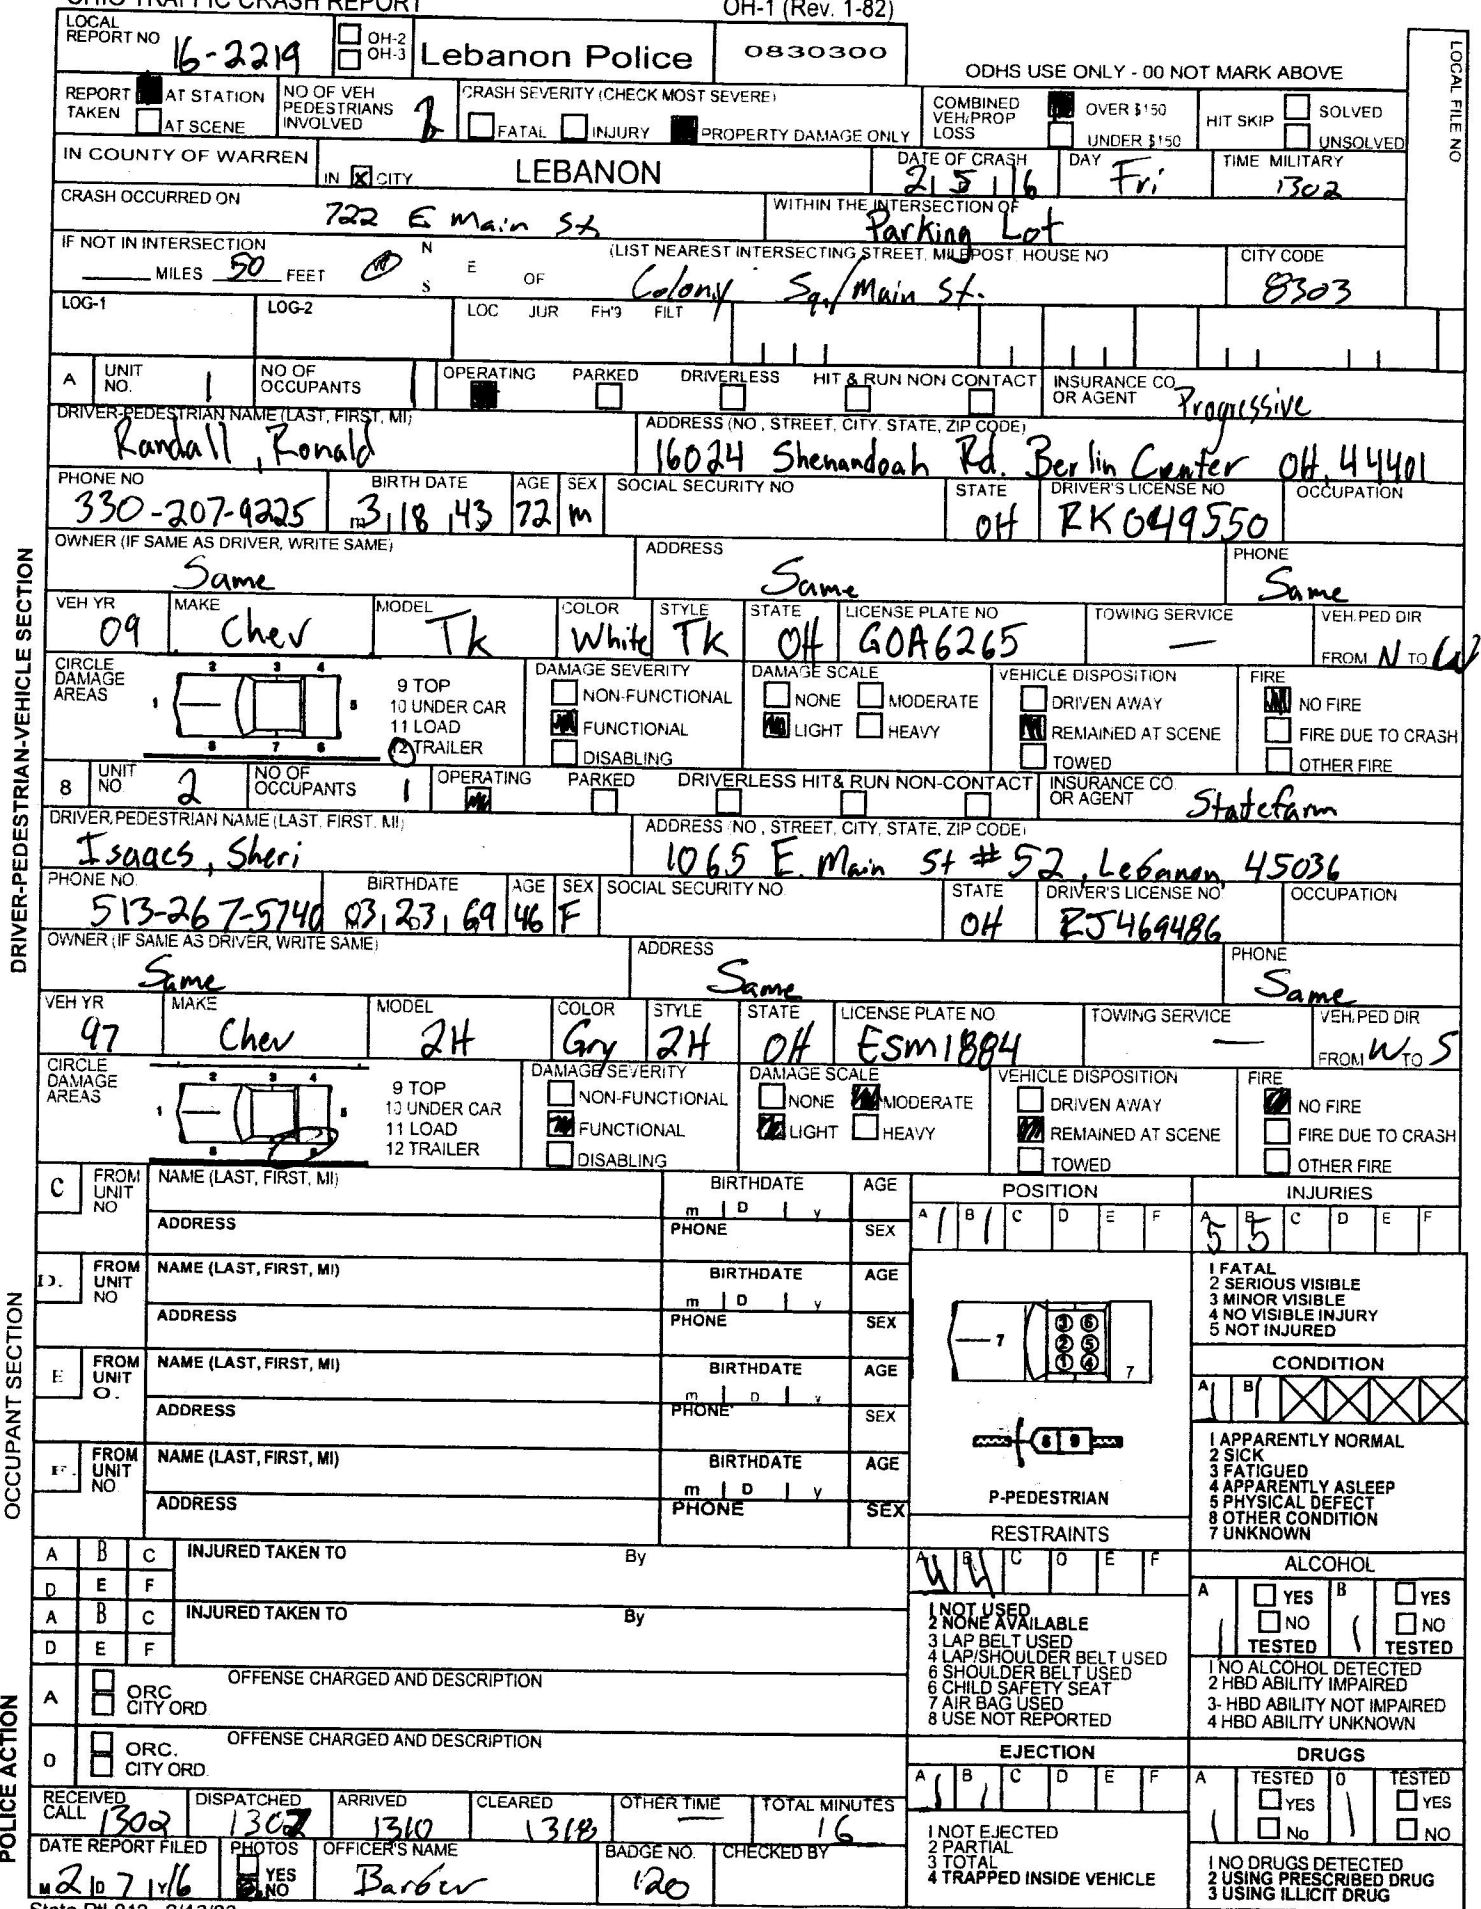 OHIO TRAFFIC CRASH REPORT OH-1 (Rev. 1-82)
LOCAL REPORT NO 16-2219 OH-2 OH-3 Lebanon Police 0830300
ODHS USE ONLY - 00 NOT MARK ABOVE
LOCAL FILE NO
REPORT TAKEN AT STATION AT SCENE NO OF VEH PEDESTRIANS INVOLVED 2 CRASH SEVERITY (CHECK MOST SEVERE) FATAL INJURY PROPERTY DAMAGE ONLY COMBINED VEH/PROP LOSS OVER $150 UNDER $150 HIT SKIP SOLVED UNSOLVED
IN COUNTY OF WARREN IN X CITY LEBANON DATE OF CRASH 2 5 16 DAY Fri TIME MILITARY 1302
CRASH OCCURRED ON 722 E Main St WITHIN THE INTERSECTION OF Parking Lot
IF NOT IN INTERSECTION MILES 50 FEET N S E W OF (LIST NEAREST INTERSECTING STREET, MILEPOST, HOUSE NO Colony Sq./Main St. CITY CODE 8303
LOG-1 LOG-2 LOC JUR FH'9 FILT
DRIVER-PEDESTRIAN-VEHICLE SECTION
A UNIT NO. 1 NO OF OCCUPANTS 1 OPERATING PARKED DRIVERLESS HIT & RUN NON CONTACT INSURANCE CO OR AGENT Progressive
DRIVER-PEDESTRIAN NAME (LAST, FIRST, MI) Randall, Ronald ADDRESS (NO, STREET, CITY. STATE, ZIP CODE) 16024 Shenandoah Rd. Berlin Center OH, 44401
PHONE NO 330-207-9225 BIRTH DATE m 3, 18, 43 AGE 72 SEX M SOCIAL SECURITY NO STATE OH DRIVER'S LICENSE NO RK049550 OCCUPATION
OWNER (IF SAME AS DRIVER, WRITE SAME) Same ADDRESS Same PHONE Same
VEH YR 09 MAKE Chev MODEL TK COLOR White STYLE TK STATE OH LICENSE PLATE NO GOA6265 TOWING SERVICE — VEH.PED DIR FROM N TO W
CIRCLE DAMAGE AREAS 1 2 3 4 5 6 7 8 9 TOP 10 UNDER CAR 11 LOAD 12 TRAILER DAMAGE SEVERITY NON-FUNCTIONAL FUNCTIONAL DISABLING DAMAGE SCALE NONE MODERATE LIGHT HEAVY VEHICLE DISPOSITION DRIVEN AWAY REMAINED AT SCENE TOWED FIRE NO FIRE FIRE DUE TO CRASH OTHER FIRE
8 UNIT NO 2 NO OF OCCUPANTS 1 OPERATING PARKED DRIVERLESS HIT & RUN NON-CONTACT INSURANCE CO. OR AGENT Statefarm
DRIVER, PEDESTRIAN NAME (LAST. FIRST. MI) Isaacs, Sheri ADDRESS (NO, STREET, CITY, STATE, ZIP CODE) 1065 E. Main St #52, Lebanon, 45036
PHONE NO. 513-267-5740 BIRTHDATE 03, 23, 69 AGE 46 SEX F SOCIAL SECURITY NO. STATE OH DRIVER'S LICENSE NO RJ469486 OCCUPATION
OWNER (IF SAME AS DRIVER, WRITE SAME) Same ADDRESS Same PHONE Same
VEH YR 97 MAKE Chev MODEL 2H COLOR Gry STYLE 2H STATE OH LICENSE PLATE NO. ESM1884 TOWING SERVICE — VEH.PED DIR FROM W TO S
CIRCLE DAMAGE AREAS 1 2 3 4 5 9 TOP 10 UNDER CAR 11 LOAD 12 TRAILER DAMAGE SEVERITY NON-FUNCTIONAL FUNCTIONAL DISABLING DAMAGE SCALE NONE MODERATE LIGHT HEAVY VEHICLE DISPOSITION DRIVEN AWAY REMAINED AT SCENE TOWED FIRE NO FIRE FIRE DUE TO CRASH OTHER FIRE
OCCUPANT SECTION
C FROM UNIT NO NAME (LAST, FIRST, MI) BIRTHDATE m D y AGE
ADDRESS PHONE SEX
D. FROM UNIT NO NAME (LAST, FIRST, MI) BIRTHDATE m D y AGE
ADDRESS PHONE SEX
E FROM UNIT O. NAME (LAST, FIRST, MI) BIRTHDATE m D y AGE
ADDRESS PHONE SEX
F. FROM UNIT NO NAME (LAST, FIRST, MI) BIRTHDATE m D y AGE
ADDRESS PHONE SEX
A B C D E F INJURED TAKEN TO By
A B C D E F INJURED TAKEN TO By
POSITION
A 1 B 1 C D E F
7 3 6 2 5 1 4 7
8 9
P-PEDESTRIAN
INJURIES
A 5 B 5 C D E F
1 FATAL
2 SERIOUS VISIBLE
3 MINOR VISIBLE
4 NO VISIBLE INJURY
5 NOT INJURED
CONDITION
A 1 B 1
1 APPARENTLY NORMAL
2 SICK
3 FATIGUED
4 APPARENTLY ASLEEP
5 PHYSICAL DEFECT
8 OTHER CONDITION
7 UNKNOWN
RESTRAINTS
A 4 B 4 C O E F
1 NOT USED
2 NONE AVAILABLE
3 LAP BELT USED
4 LAP/SHOULDER BELT USED
6 SHOULDER BELT USED
6 CHILD SAFETY SEAT
7 AIR BAG USED
8 USE NOT REPORTED
ALCOHOL
A 1 YES NO TESTED B 1 YES NO TESTED
1 NO ALCOHOL DETECTED
2 HBD ABILITY IMPAIRED
3- HBD ABILITY NOT IMPAIRED
4 HBD ABILITY UNKNOWN
POLICE ACTION
A ORC CITY ORD. OFFENSE CHARGED AND DESCRIPTION
O ORC. CITY ORD. OFFENSE CHARGED AND DESCRIPTION
EJECTION
A 1 B 1 C D E F
1 NOT EJECTED
2 PARTIAL
3 TOTAL
4 TRAPPED INSIDE VEHICLE
DRUGS
A 1 TESTED YES No O 1 TESTED YES NO
1 NO DRUGS DETECTED
2 USING PRESCRIBED DRUG
3 USING ILLICIT DRUG
RECEIVED CALL 1302 DISPATCHED 1302 ARRIVED 1310 CLEARED 1318 OTHER TIME — TOTAL MINUTES 16
DATE REPORT FILED M 2 D 7 Y 16 PHOTOS YES NO OFFICER'S NAME Barber BADGE NO. 120 CHECKED BY